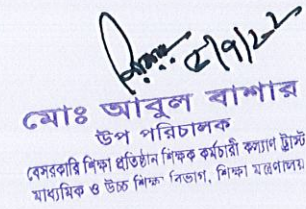 ৫/৭/২২
মোঃ আবুল বাশার
উপ পরিচালক
বেসরকারি শিক্ষা প্রতিষ্ঠান শিক্ষক কর্মচারী কল্যাণ ট্রাস্ট
মাধ্যমিক ও উচ্চ শিক্ষা বিভাগ, শিক্ষা মন্ত্রণালয়